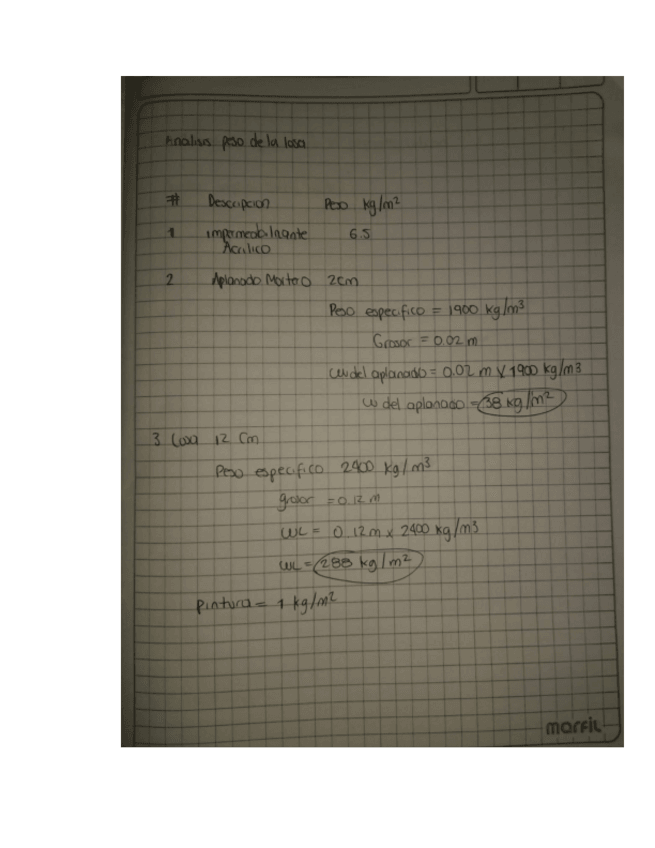 Analisis peso de la losa
# Descripcion Peso kg/m²
1 impermeabilizante 6.5
Acrilico
2 Aplanado Mortero 2cm
Peso especifico = 1900 kg/m³
Grosor = 0.02 m
W del aplanado = 0.02 m x 1900 kg/m3
W del aplanado = 38 kg/m²
3 Losa 12 cm
Peso especifico 2400 kg/m³
grosor = 0.12 m
WL = 0.12m x 2400 kg/m3
WL = 288 kg/m²
Pintura = 1 kg/m²
marfil